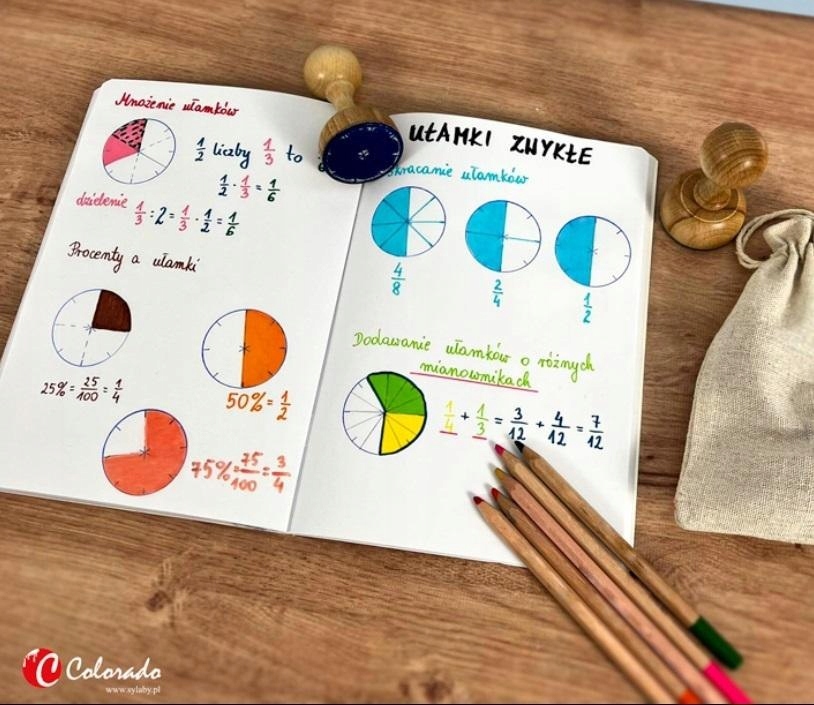 Mnożenie ułamków
1/2 liczby 1/3 to
1/2 · 1/3 = 1/6
dzielenie 1/3 : 2 = 1/3 · 1/2 = 1/6
Procenty a ułamki
25% = 25/100 = 1/4
50% = 1/2
75% = 75/100 = 3/4
UŁAMKI ZWYKŁE
skracanie ułamków
4/8 2/4 1/2
Dodawanie ułamków o różnych
mianownikach
1/4 + 1/3 = 3/12 + 4/12 = 7/12
C Colorado
www.sylaby.pl